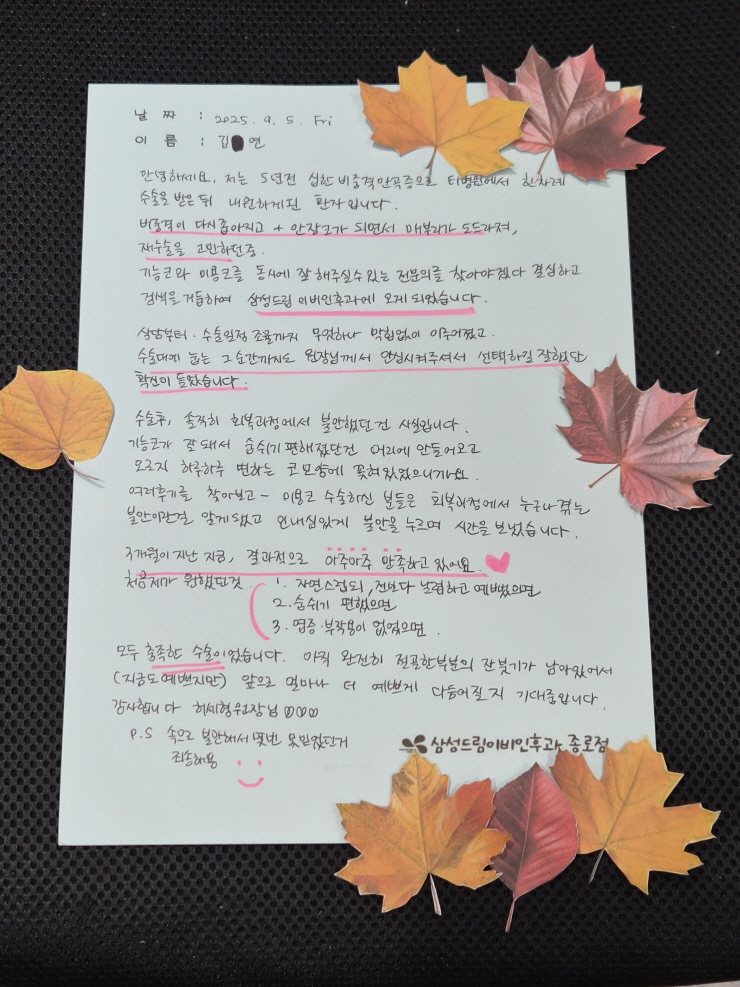 날 짜 : 2025. 9. 5. Fri
이 름 : 김 연
안녕하세요, 저는 5년전 심한 비중격만곡증으로 타병원에서 한차례
수술을 받은 뒤 내원하게된 환자입니다.
비중격이 다시 좁아지고 + 안장코가 되면서 매부리가 도드라져,
재수술을 고민하던중.
기능코와 미용코를 동시에 잘 해주실수있는 전문의를 찾아야겠다 결심하고
검색을 거듭하여 삼성드림 이비인후과에 오게 되었습니다.
상담부터 · 수술일정 조율까지 무엇하나 막힘없이 이루어졌고.
수술대에 눕는 그순간까지도 원장님께서 안심시켜주셔서 선택하길 잘했단
확신이 들었습니다.
수술후, 솔직히 회복과정에서 불안했던건 사실입니다.
기능코가 잘 돼서 숨쉬기 편해졌단건 머리에 안들어오고
오로지 하루하루 변하는 코모양에 꽂혀있었으니까요.
여러후기를 찾아보고 ~ 미용코 수술하신 분들은 회복과정에서 누구나 겪는
불안이란걸 알게됐고 인내심있게 불안을 누르며 시간을 보냈습니다.
3개월이 지난 지금, 결과적으로 아주아주 만족하고 있어요.
처음제가 원했던것 1. 자연스럽되, 전보다 날렵하고 예뻤으면
2. 숨쉬기 편했으면
3. 염증·부작용이 없었으면.
모두 충족한 수술이었습니다. 아직 완전히 절골한부분의 잔붓기가 남아있어서
(지금도예쁘지만) 앞으로 얼마나 더 예쁘게 다듬어질지 기대중입니다.
감사합니다 허세형원장님 ♡♡♡
P.S 속으로 불안해서 몇번 못믿었던거
죄송해용
삼성드림이비인후과 종로점